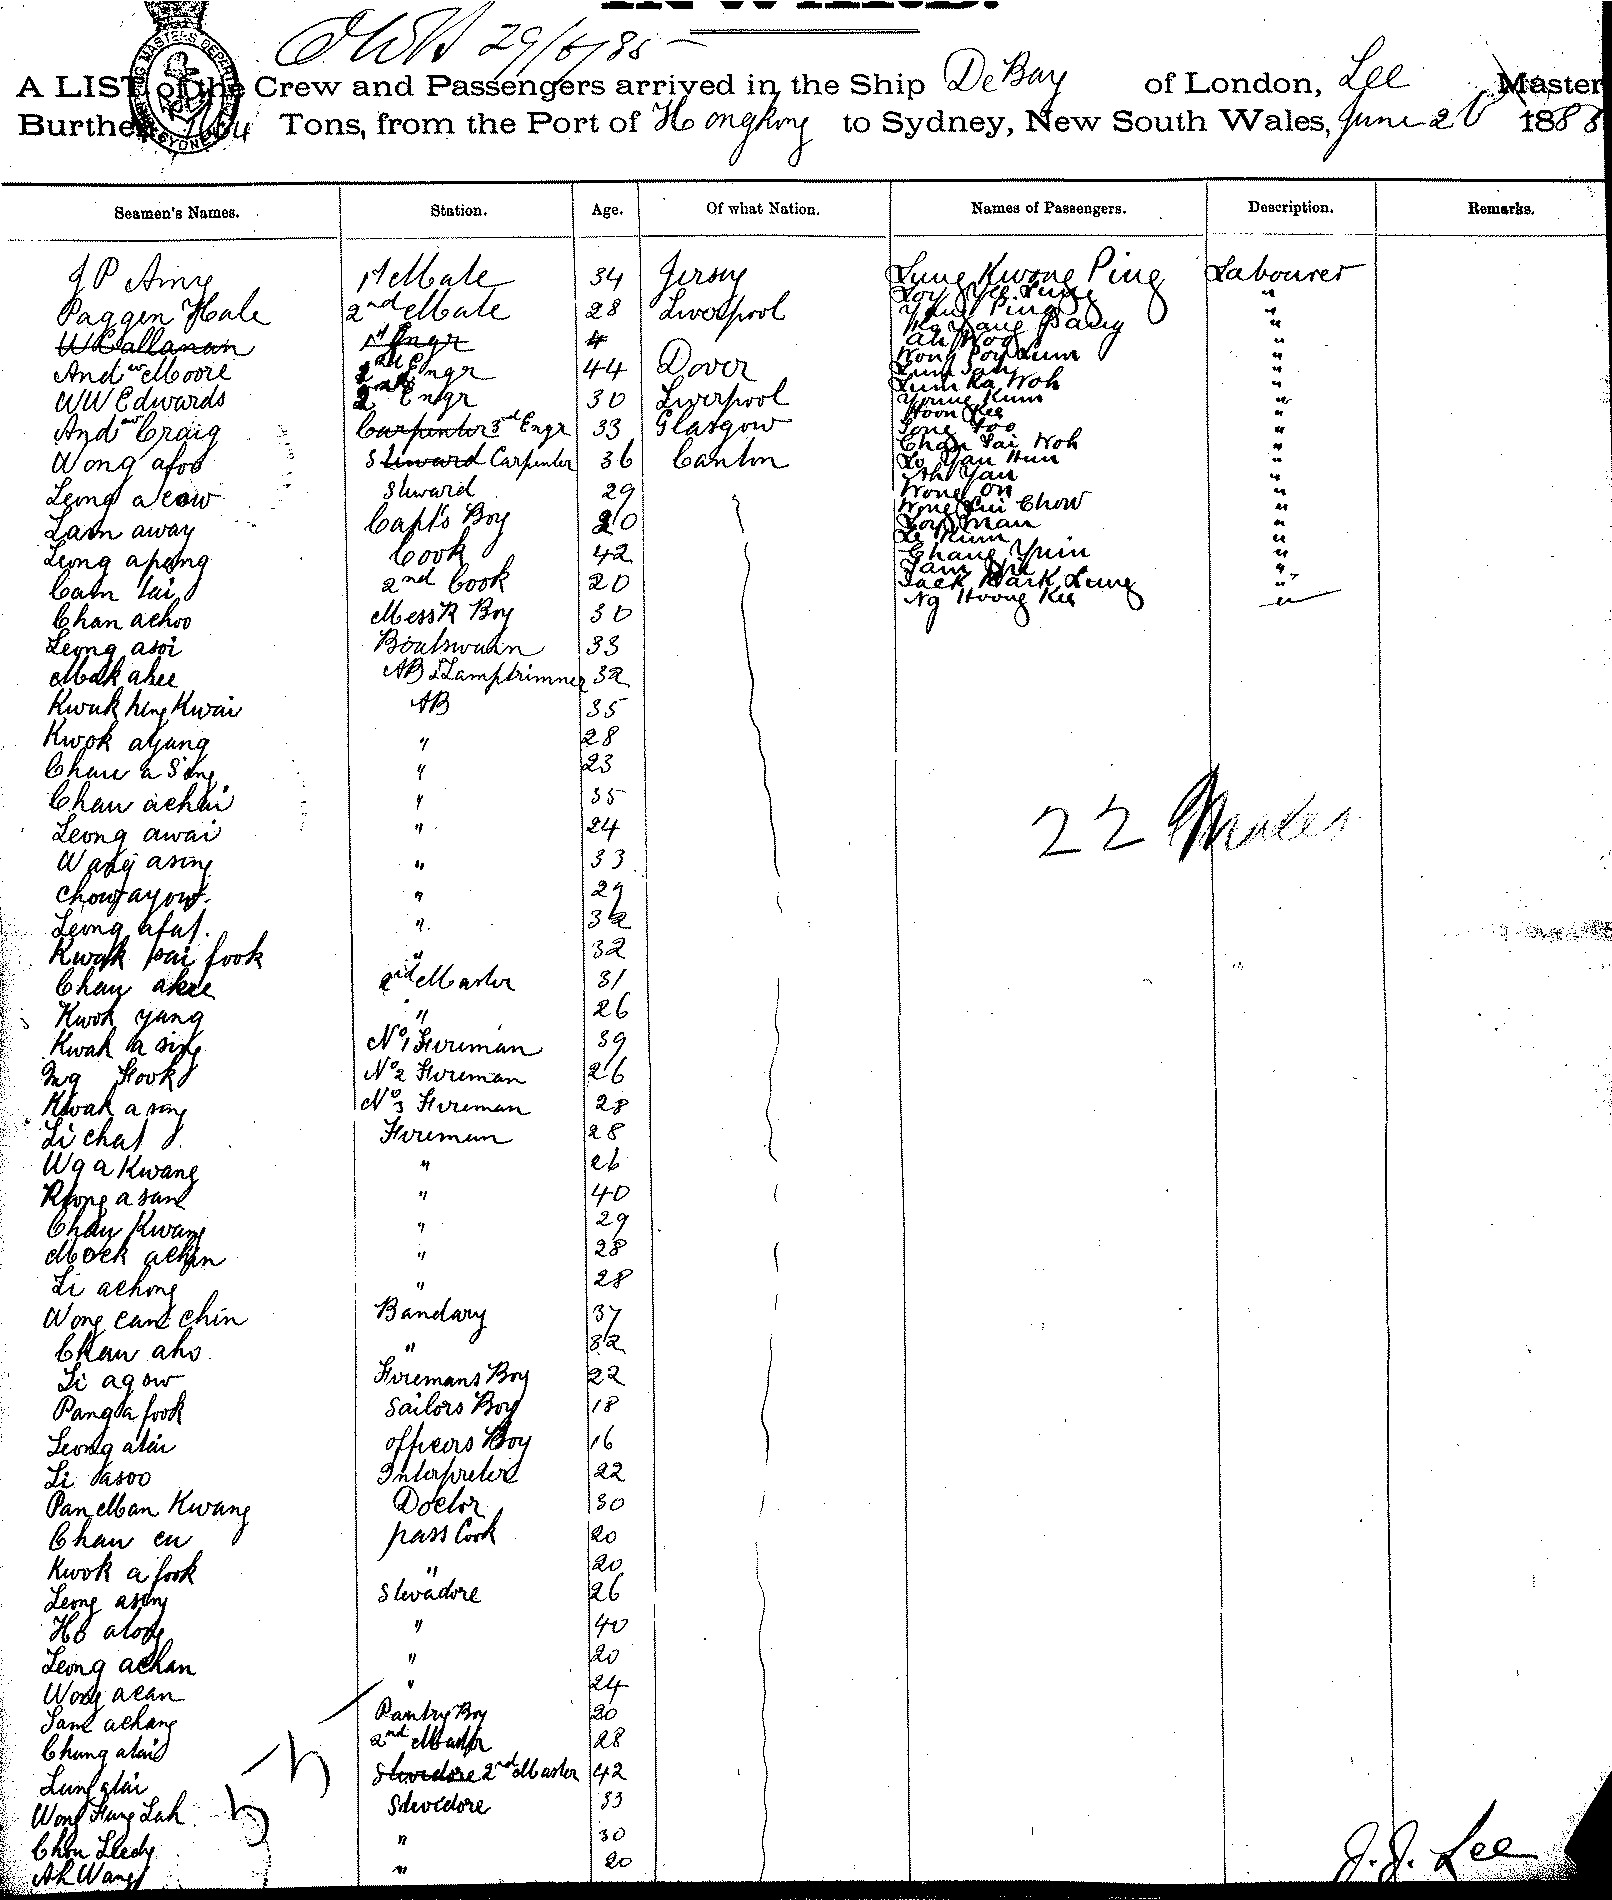 INWARD.
29/6/85
A LIST of the Crew and Passengers arrived in the Ship De Bay of London, Lee Master
Burthen Tons, from the Port of Hongkong to Sydney, New South Wales, June 28 1888
Seamen's Names. Station. Age. Of what Nation. Names of Passengers. Description. Remarks.
J P Amy 1st Mate 34 Jersey Lung Kwong Ping Labourer
Paggen Hale 2nd Mate 28 Liverpool Loy Yee Lung "
W Callanan 1st Engr 4 Ping "
Andw Moore Engr 44 Dover Ah "
W W Edwards 2nd Engr 30 Liverpool Wong Poy Lum "
Andw Craig Carpenter 3rd Engr 33 Glasgow Lum Ka Woh "
Wong afoo Steward Carpenter 36 Canton Young Kum "
Leong acow Steward 29 Hoon Kee "
Lam away Capt's Boy 20 Song Foo "
Leong apong Cook 42 Chan Tai Woh "
Cam tai 2nd Cook 20 Lo Yan Hun "
Chan achoo Mess R Boy 30 Ah Yan "
Leong asoi Boatswain 33 Wong On "
Mak akee AB & Lamptrimmer 32 Wong Lui Chow "
Kwuk hing Kwai AB 35 Loy Man "
Kwok ayung " 28 Le Kum "
Chau a Sing " 23 Chang Yuin "
Chau achui " 35 Tam "
Leong awai " 24 Jack Mark Lung "
Wang asing " 33 Ng Hoong Kee "
22 Males
Chow ayow " 29
Leong afat " 32
Kwok pai fook " 32
Chau akee 2nd Master 31
Kwok yang " 26
Kwak a sing No 1 Fireman 39
Ing Fook No 2 Fireman 26
Kwak a sing No 3 Fireman 28
Li chat Fireman 28
Wg a Kwang " 26
Rong a sam " 40
Chau Kwang " 29
Mock achin " 28
Li achong " 28
Wong cam chin Bandary 37
Chau aho " 32
Li agow Firemans Boy 22
Pang a fook Sailors Boy 18
Leong atai officers Boy 16
Li asoo Interpreter 22
Pan Man Kwang Doctor 30
Chau en pass Cook 20
Kwok a fook " 20
Leong asing Stevadore 26
Ho along " 40
Leong achan " 20
Wong acan " 24
Sam achang Pantry Boy 20
Chung atai 2nd Master 28
Lung atai Stevedore 2nd Master 42
Wong Hang Lah Stevedore 33
Chou Leedy " 30
Ah Wang " 20
J. J. Lee